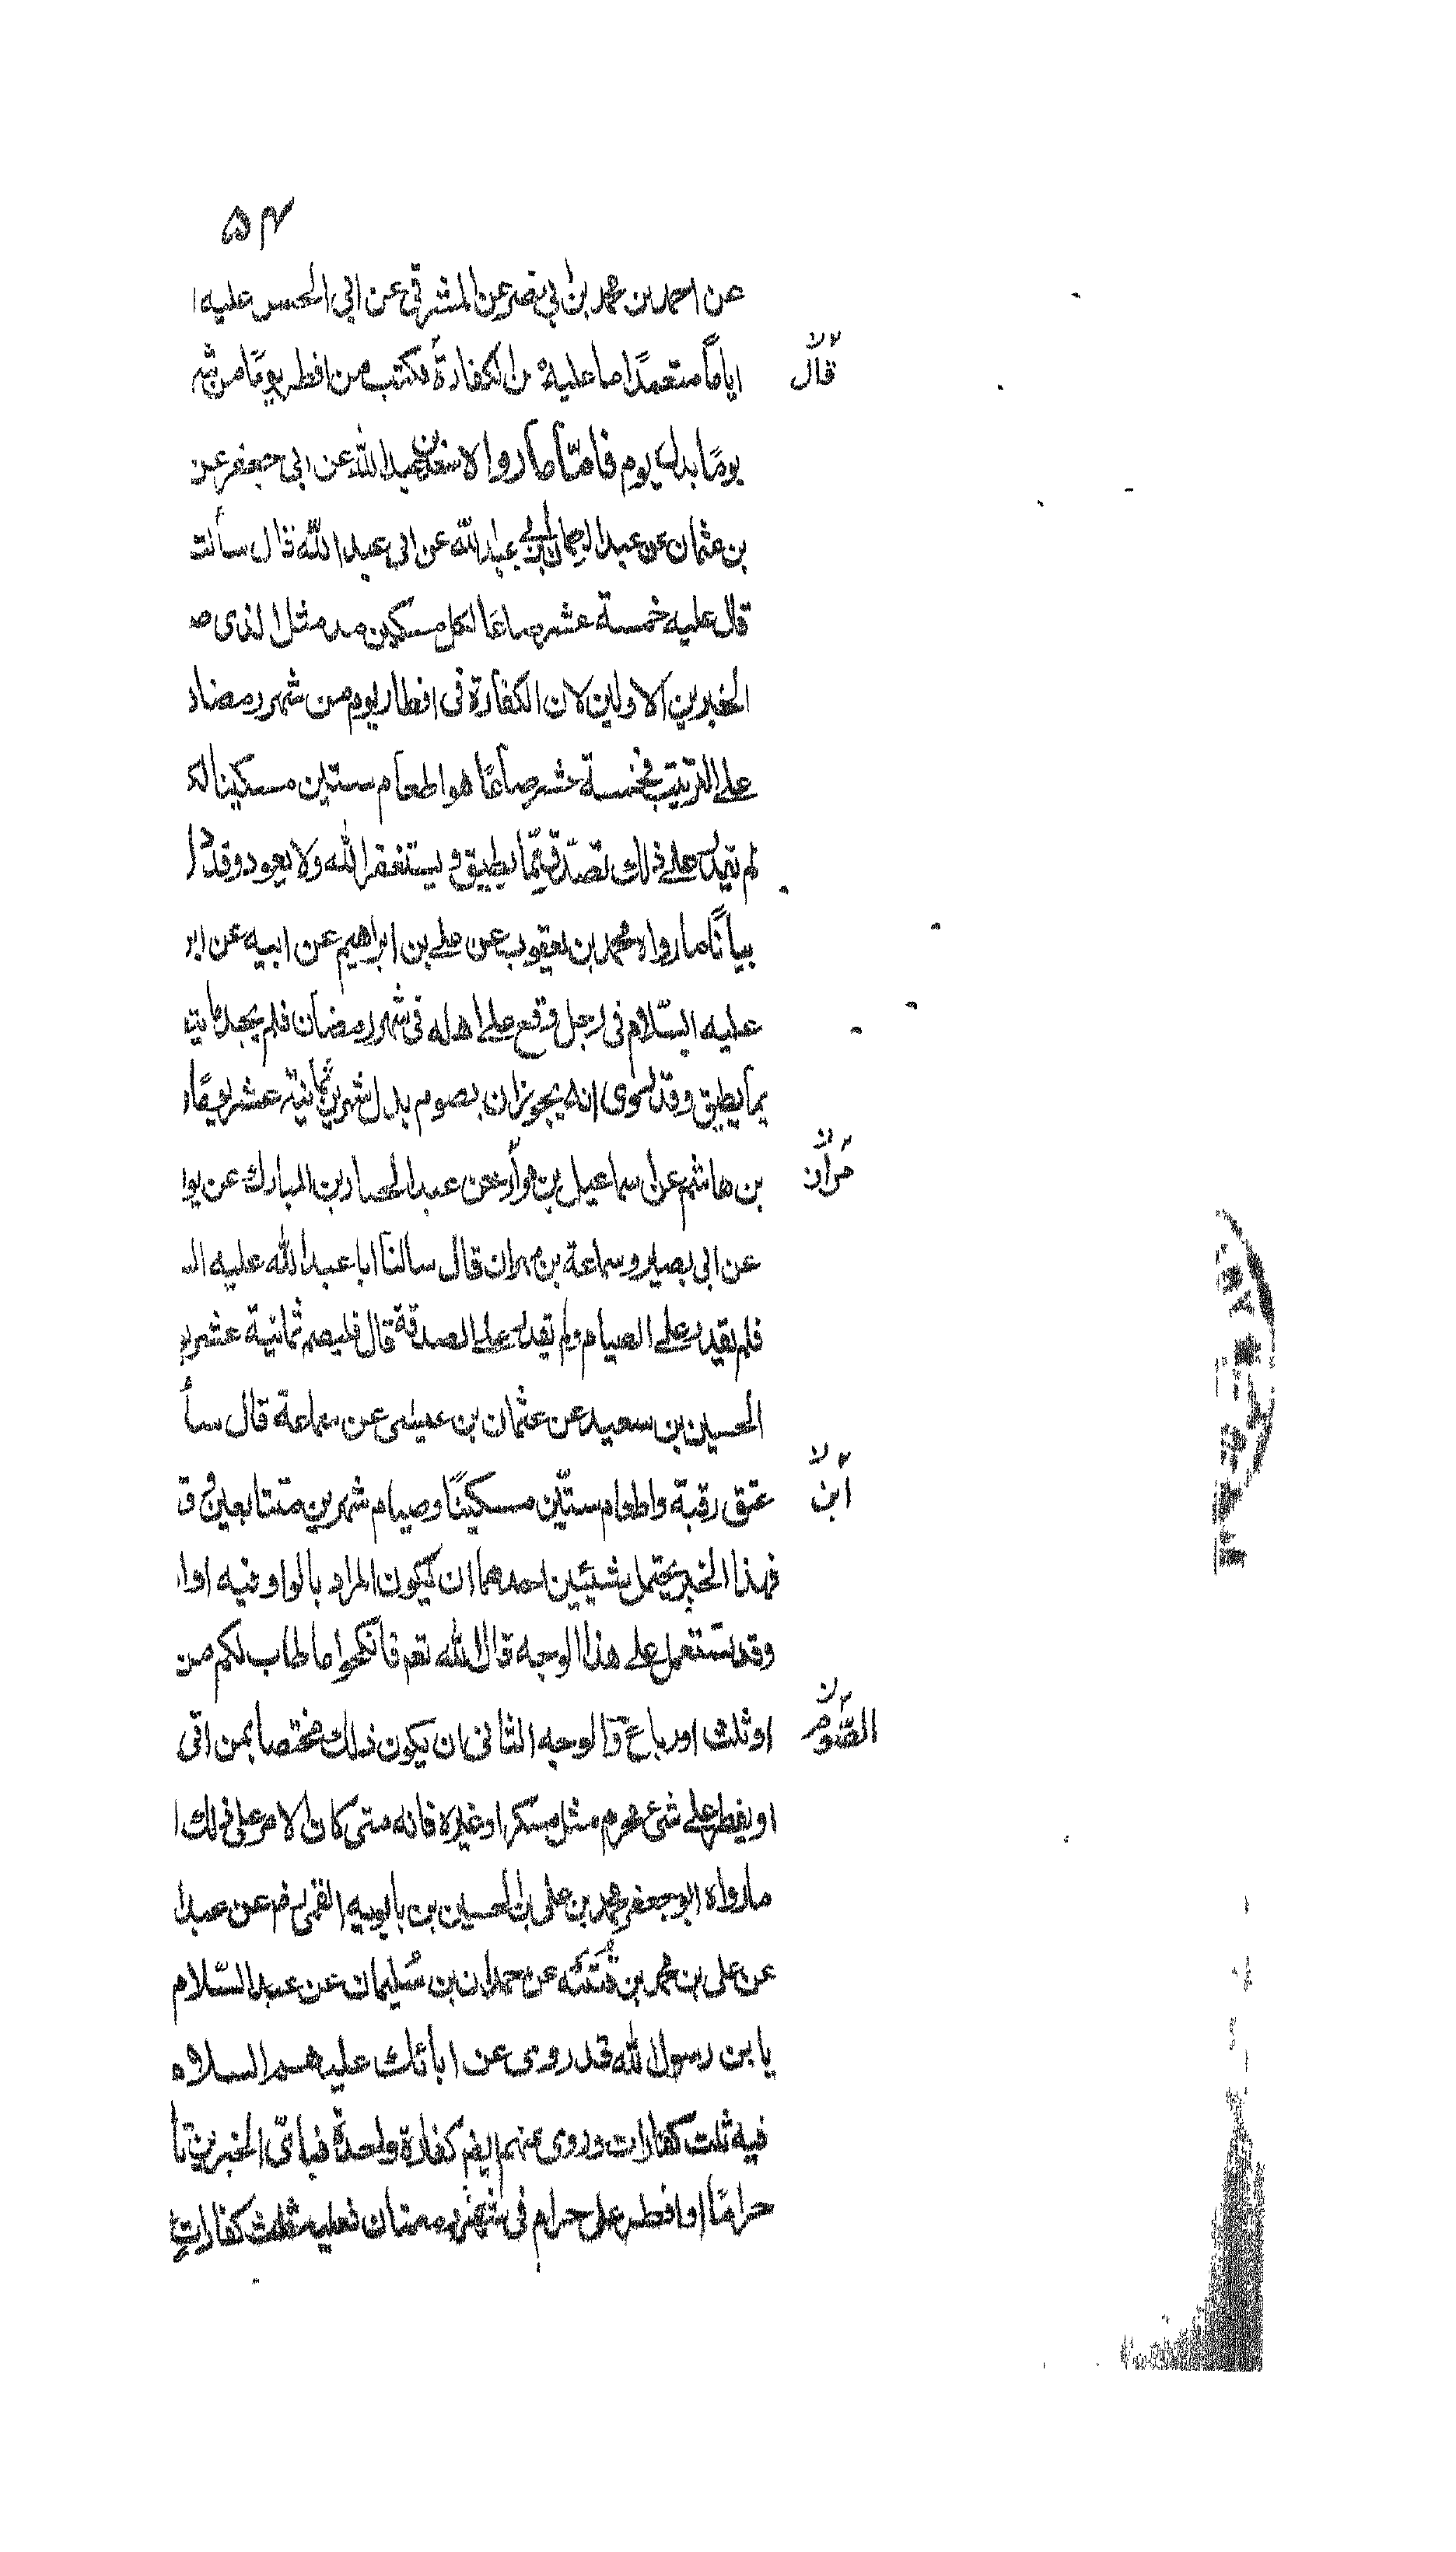 ۵۴
عن احمد بن محمد بن ابي نصر عن المشرقي عن ابي الحسن عليه ا
اياماً متعمدًا ما عليه من الكفارة فكتب من افطر يومًا من شهر
قال
يومًا بدل يوم فامّا ما رواه سعد بن عبد الله عن ابي جعفر عن
بن عثمان عن عبد الرحمان بن ابي عبد الله عن ابي عبد الله قال سألت
قال عليه خمسة عشر صاعًا لكل مسكين مد مثل الذي صـ
الخبرين الاولين لان الكفارة في افطار يوم من شهر رمضان
على الترتيب فخمسة عشر صاعًا هو اطعام ستين مسكينا لكـ
لم يقدر على ذلك تصدّق بما يطيق ويستغفر الله ولا يعود وقد
بيانًا ما رواه محمد بن يعقوب عن علي بن ابراهيم عن ابيه عن ابن
عليه السّلام في رجل وقع على اهله في شهر رمضان فلم يجد ما يتـ
بما يطيق وقد روى انه يجوز ان يصوم بدل شهرين ثمانية عشر يومًا
بن هاشم عن اسماعيل بن مرار عن عبد الجبار بن المبارك عن يو
مرار ن
عن ابي بصير وسماعة بن مهران قال سالنا ابا عبد الله عليه السـ
فلم يقدر على الصيام ولم يقدر على الصدقة قال فليصم ثمانية عشر يو
الحسين بن سعيد عن عثمان بن عيسى عن سماعة قال سأ
عتق رقبة واطعام ستّين مسكينًا وصيام شهرين متتابعين و ق
ابن
فهذا الخبر يحتمل شيئين احدهما ان يكون المراد بالواو فيه او ا
وقد تستعمل على هذا الوجه قال الله تعم فانكحوا ما طاب لكم من
او ثلث او رباع والوجه الثاني ان يكون ذلك مختصا بمن اتى
الصّوم
او يفطر على شئ محرم مثل مسكر او غيره فانه متى كان الامر على ذلك ا
ما رواه ابو جعفر محمد بن علي بن الحسين بن بابويه القمي عن عبد ا
عن علي بن محمد بن قُتَيبَه عن حمدان بن سُليمان عن عبد السّلام
يا بن رسول الله قد روى عن ابائك عليهم السلام
فيه ثلث كفارات وروى عنهم ايضم كفارة واحدة فباي الخبرين نا
حرامًا او افطر على حرام في شهر رمضان فعليه ثلث كفارات